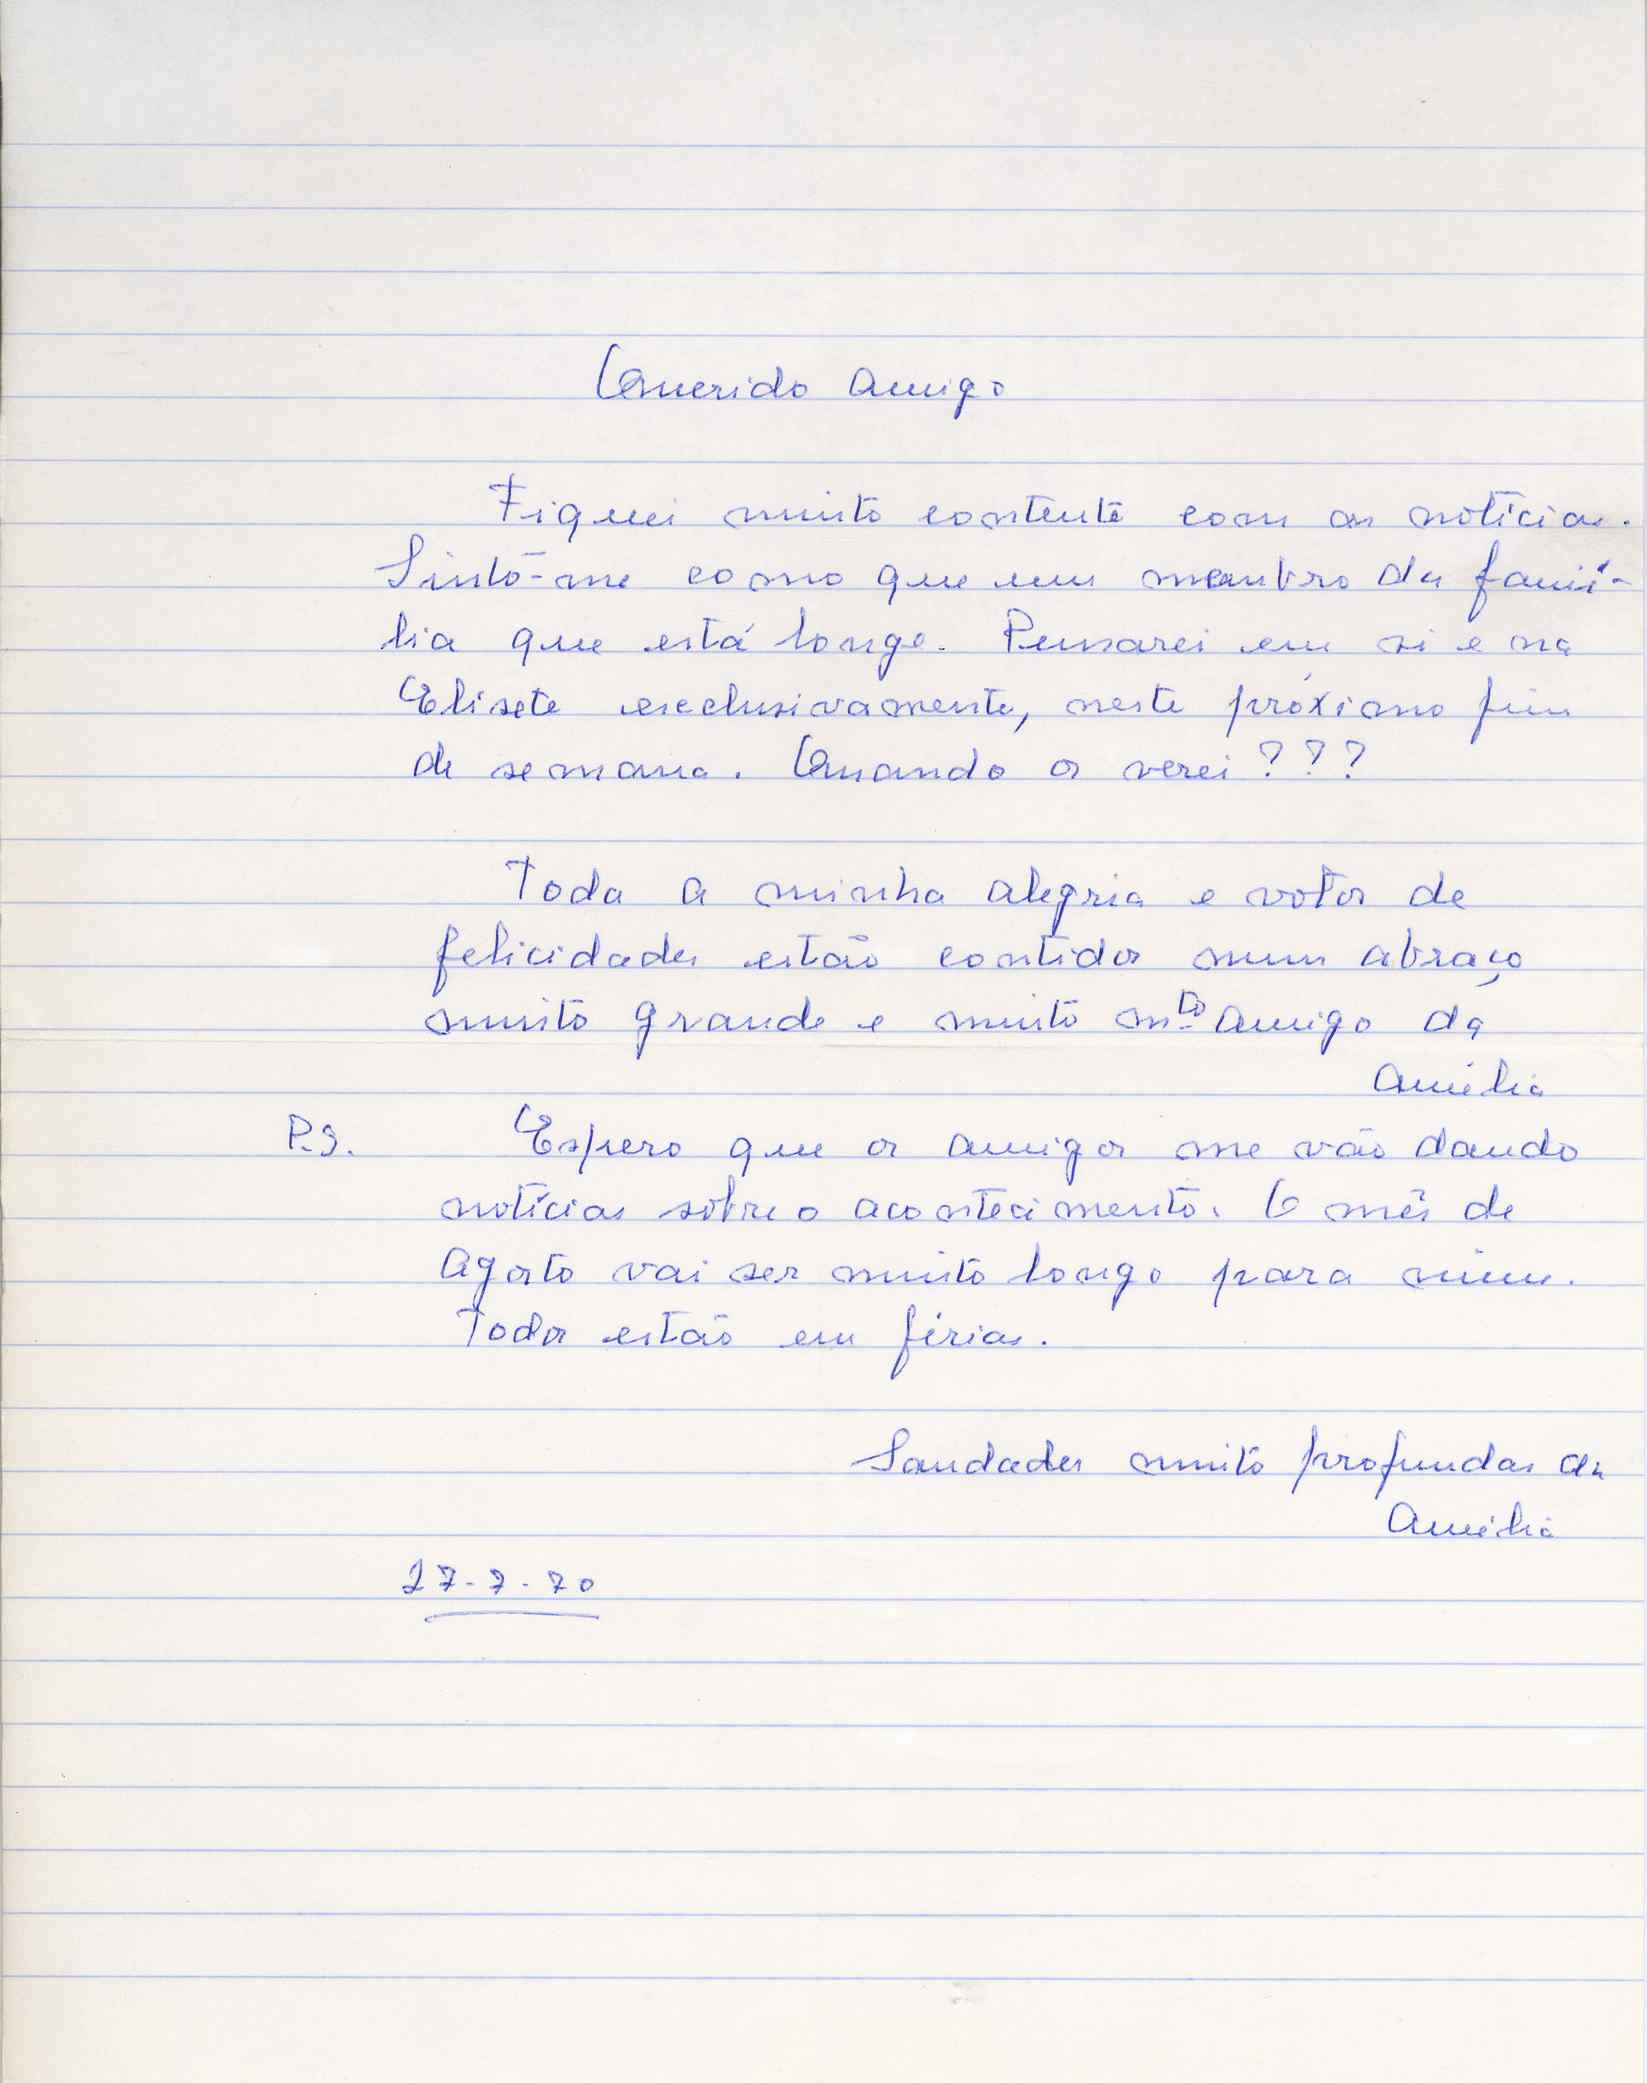 Querido Amigo
Fiquei muito contente com as notícias.
Sinto-me como que um membro da famí-
lia que está longe. Pensarei em si e na
Elisete exclusivamente, neste próximo fim
de semana. Quando os verei???
Toda a minha alegria e votos de
felicidades estão contidos num abraço
muito grande e muito mto amigo da
Amélia
P.S. Espero que os amigos me vão dando
notícias sôbre o acontecimento. O mês de
Agosto vai ser muito longo para mim.
Todos estão em férias.
Saudades muito profundas da
Amélia
27-7-70